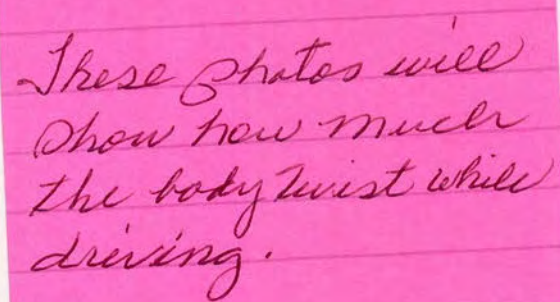 These photos will
show how much
the body twist while
driving.